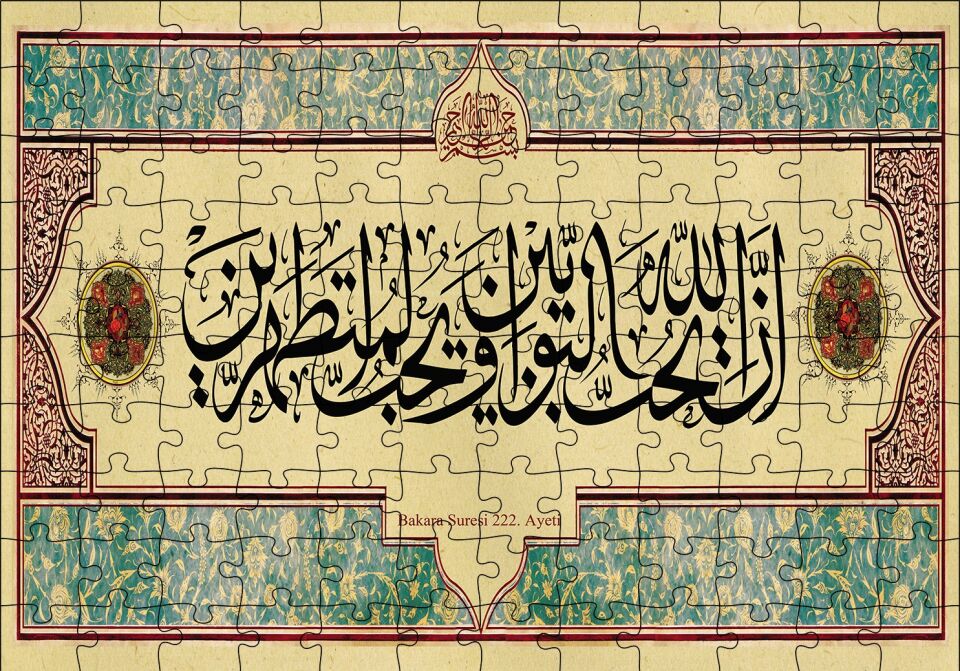 بسم الله الرحمن الرحيم
إن الله يحب التوابين ويحب المتطهرين
Bakara Suresi 222. Ayeti